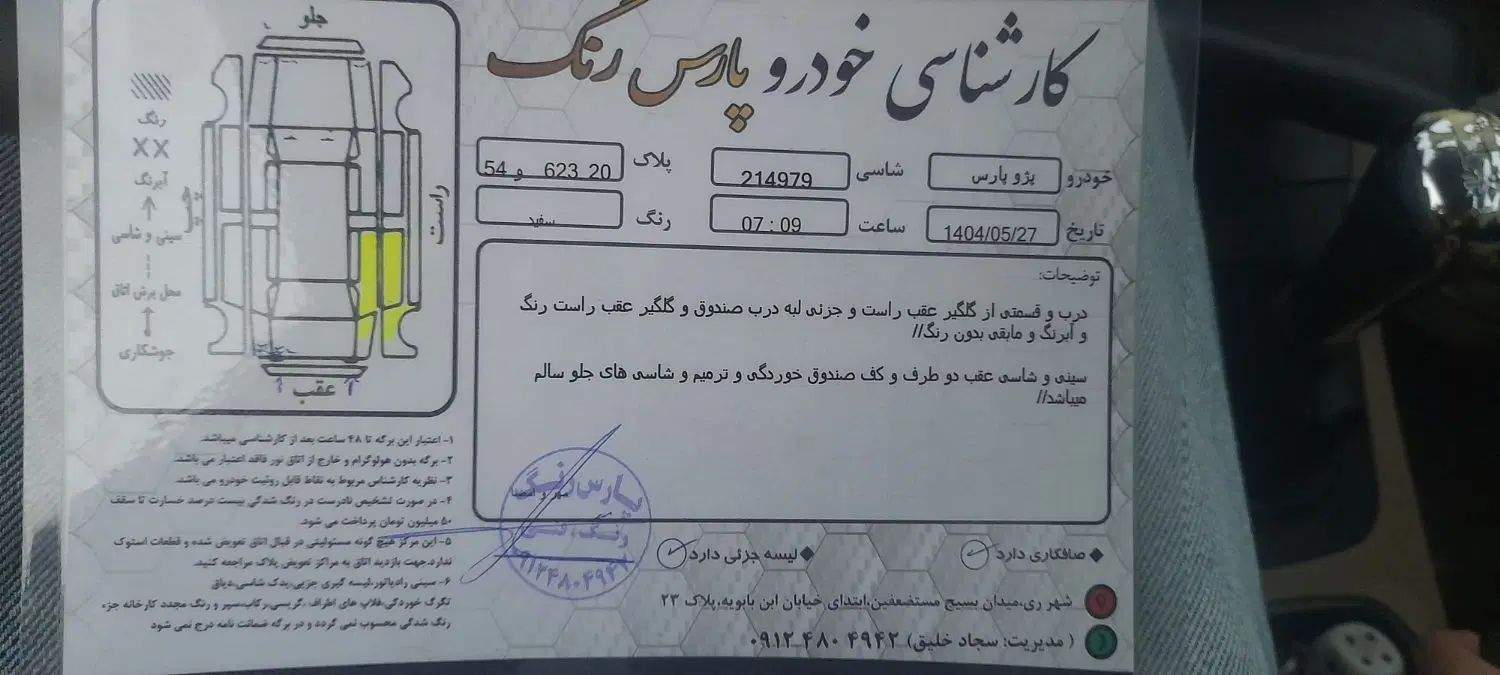 کارشناسی خودرو پارس رنگ
خودرو پژو پارس
شاسی 214979
پلاک 54 و 623 20
تاریخ 1404/05/27
ساعت 07 : 09
رنگ سفید
توضیحات:
درب و قسمتی از گلگیر عقب راست و جزئی لبه درب صندوق و گلگیر عقب راست رنگ
و آبرنگ و مابقی بدون رنگ//
سینی و شاسی عقب دو طرف و کف صندوق خوردگی و ترمیم و شاسی های جلو سالم
میباشد//
جلو
رنگ
XX
آبرنگ
سینی و شاسی
محل برش اتاق
جوشکاری
راست
چپ
عقب
۱- اعتبار این برگه تا ۴۸ ساعت بعد از کارشناسی میباشد.
۲- برگه بدون هولوگرام و خارج از اتاق نور فاقد اعتبار می باشد.
۳- نظریه کارشناس مربوط به نقاط قابل روئیت خودرو می باشد.
۴- در صورت تشخیص نادرست در رنگ شدگی بیست درصد خسارت تا سقف
۵۰ میلیون تومان پرداخت می شود.
۵- این مرکز هیچ گونه مسئولیتی در قبال اتاق تعویض شده و قطعات استوک
ندارد.جهت بازدید اتاق به مراکز تعویض پلاک مراجعه کنید.
۶- سینی رادیاتور،لیسه گیری جزیی،یدک شاسی،دیاق
تگرگ خوردگی،فلاپ های اطراف ،گریسی،رکاب،سپر و رنگ مجدد کارخانه جزء
رنگ شدگی محسوب نمی گردد و در برگه ضمانت نامه درج نمی شود
مهر و امضا
پارس رنگ
۰۹۱۲۴۸۰۴۹۴۲
صافکاری دارد
لیسه جزئی دارد
شهر ری،میدان بسیج مستضعفین،ابتدای خیابان ابن بابویه،پلاک ۲۳
( مدیریت: سجاد خلیق) ۰۹۱۲ ۴۸۰ ۴۹۴۲